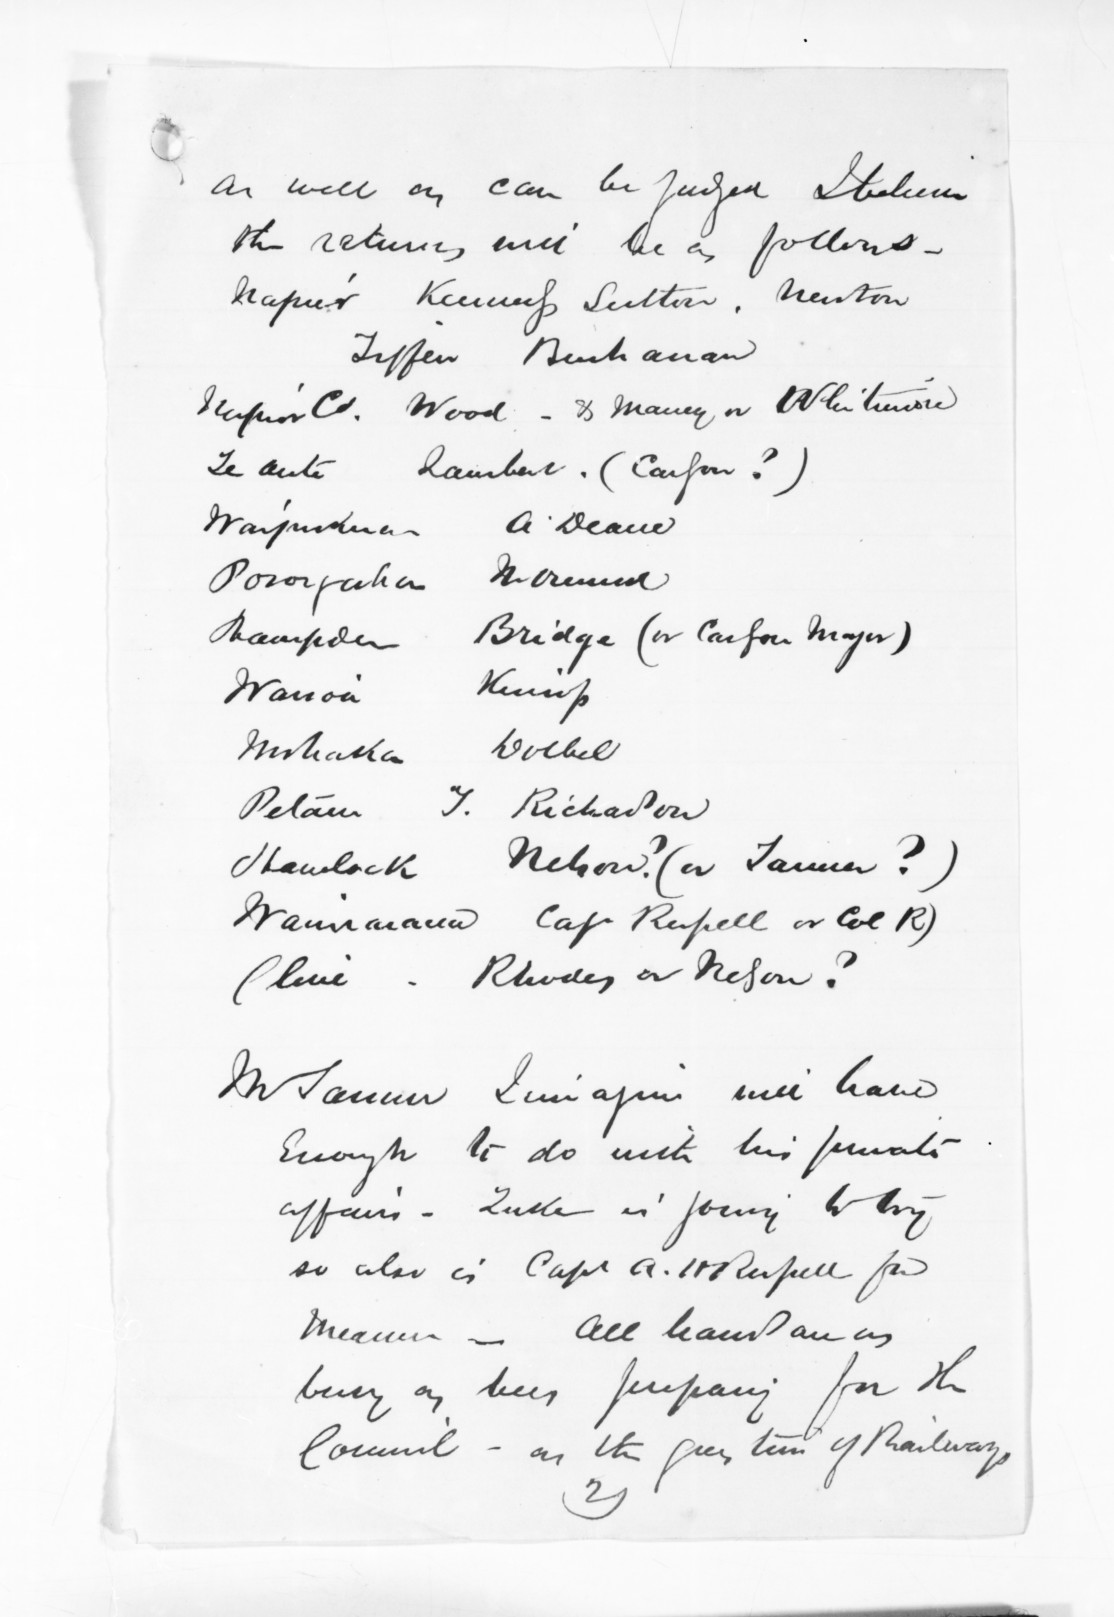 as well as can be judged I believe
the returns will be as follows -
Napier Kennedy Sutton, Newton
Tiffen Buchanan
Napier Co. Wood - & Maney or Whitmore
Te Aute Lambert. (Carlyon?)
Waipukurau A Deane
Porongahau Ormond
Hampden Bridge (or Carlyon Major)
Wairoa Kinross
Mohaka Dolbel
Petane T. Richardson
Havelock Nelson? (or Tanner?)
Waimarama Capt Russell or Col R)
Clive - Rhodes or Nelson?
Mr Tanner I imagine will have
Enough to do with his private
affairs - is going to try
so also is Capt A. H Russell for
- All hands are as
busy as bees preparing for the
Council - as the question of Railways
2)